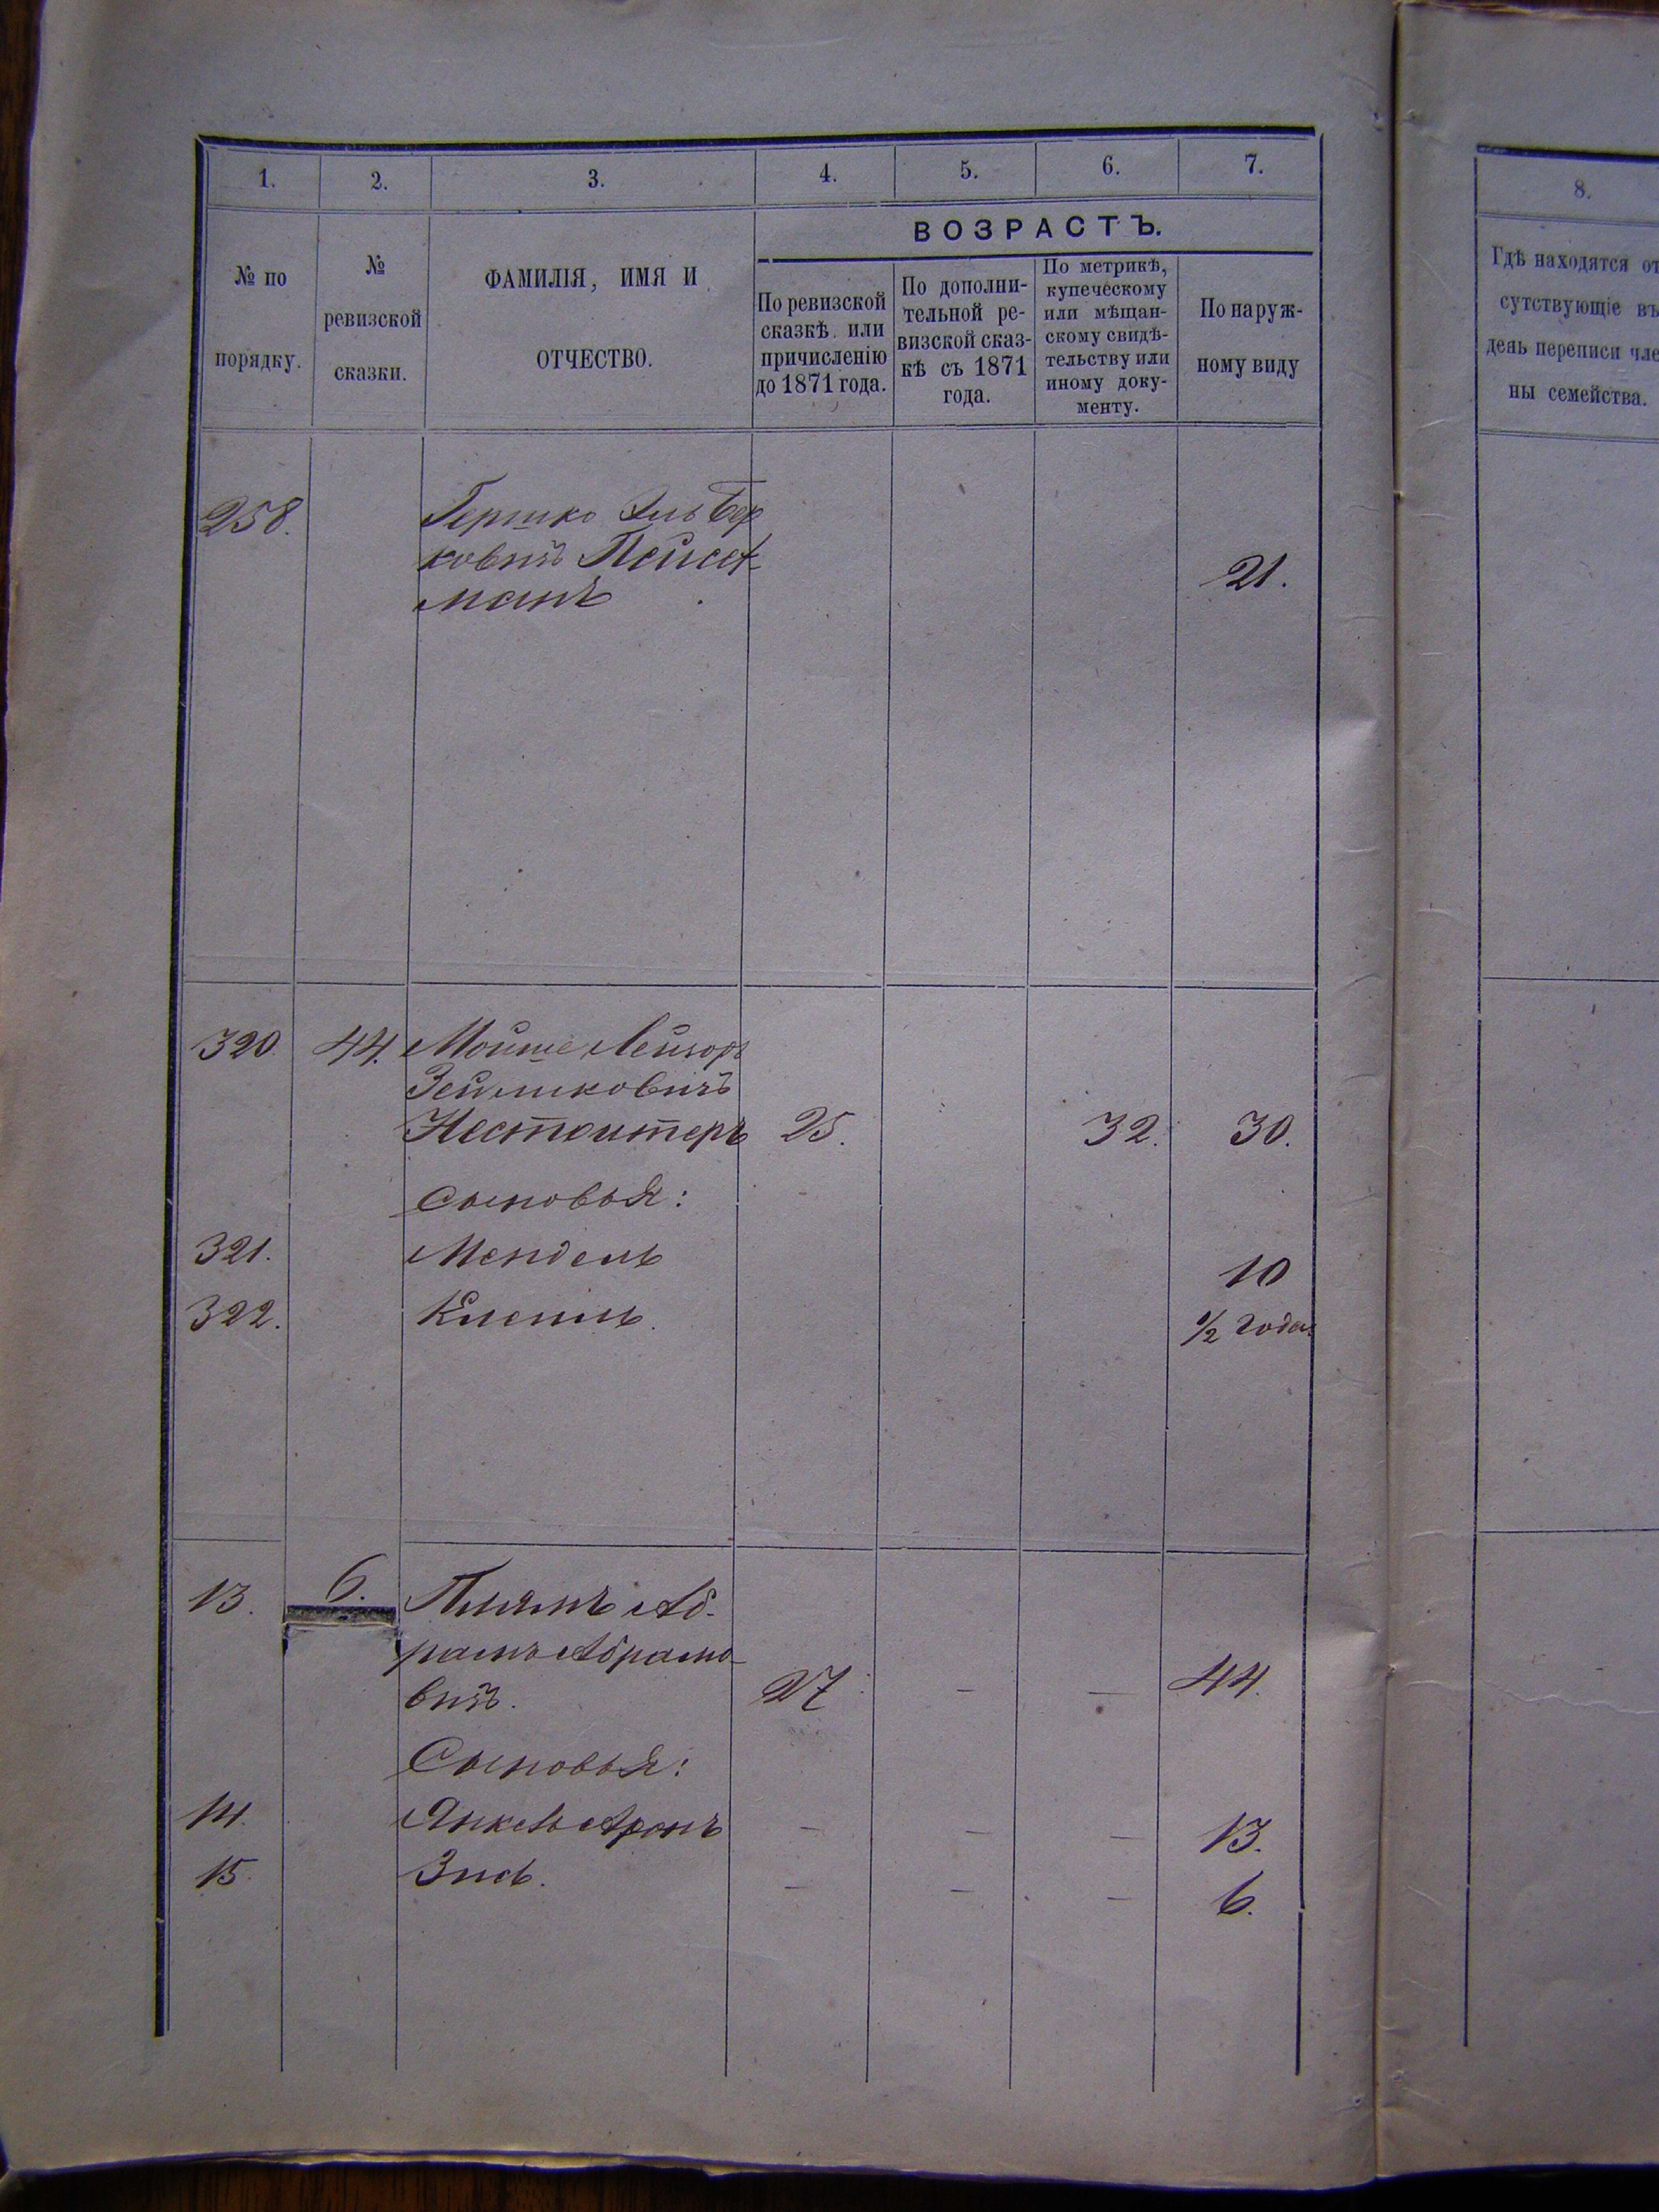 1. 2. 3. 4. 5. 6. 7.
ВОЗРАСТЪ.
№ по
порядку.
№
ревизской
сказки.
ФАМИЛІЯ, ИМЯ И
ОТЧЕСТВО.
По ревизской
сказкѣ или
причисленію
до 1871 года.
По дополни-
тельной ре-
визской сказ-
кѣ съ 1871
года.
По метрикѣ,
купеческому
или мѣщан-
скому свидѣ-
тельству или
иному доку-
менту.
По наруж-
ному виду
258. Гершко
ковичъ 21.
манъ
320. 44. Мойше Лейзоръ
Зейликовичъ
25. 32. 30.
Сыновья:
321. Мендель 10
322. ½ года
13. 6. Ab-
рамъ Абрамо-
вичъ. 27 — — 44.
Сыновья:
14. Янкель Аронъ — — — 13.
15. Зись. — — — 6.
8.
Гдѣ находятся от
сутствующіе въ
день переписи чле
ны семейства.